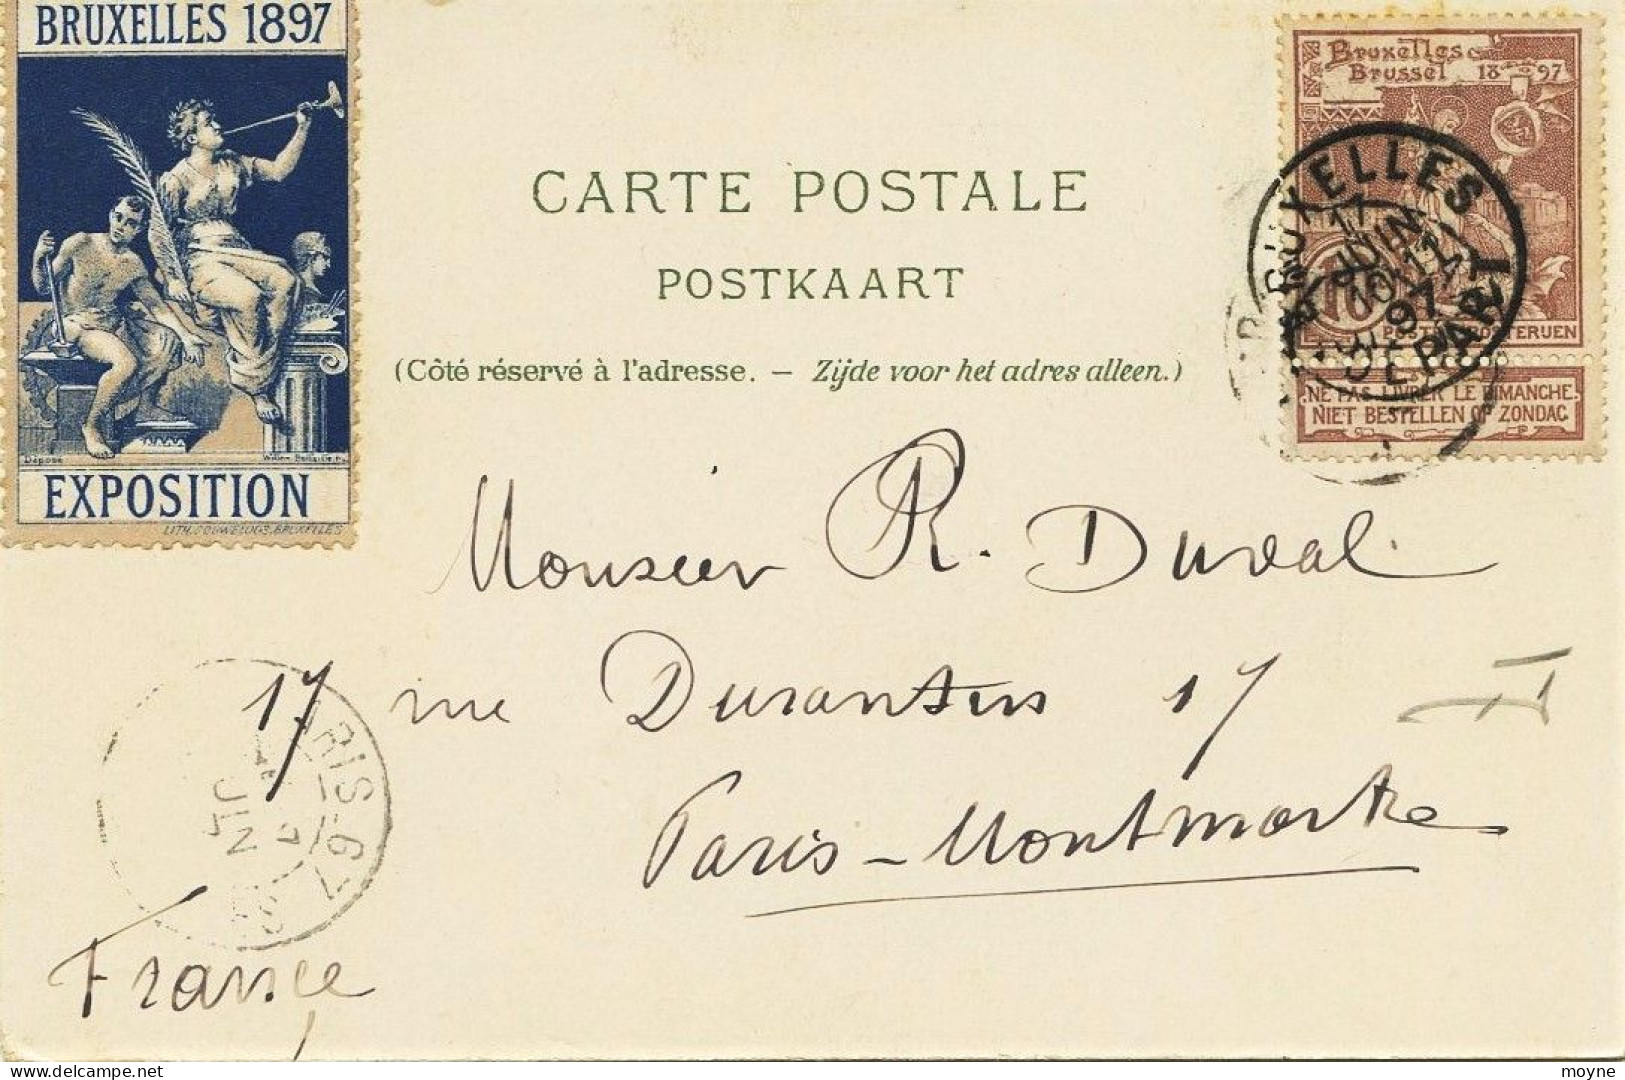 BRUXELLES 1897
Déposé
EXPOSITION
LITH. GOUWELOOS. BRUXELLES
CARTE POSTALE
POSTKAART
(Côté réservé à l'adresse. – Zijde voor het adres alleen.)
Bruxelles
Brussel 1897
BRUXELLES
17
JUIN
10-11
97
DEPART
NE PAS LIVRER LE DIMANCHE.
NIET BESTELLEN OP ZONDAG
Monsieur R. Duval
17 rue Durantin 17
Paris - Montmartre
France
PARIS
JUIN
97
moyne